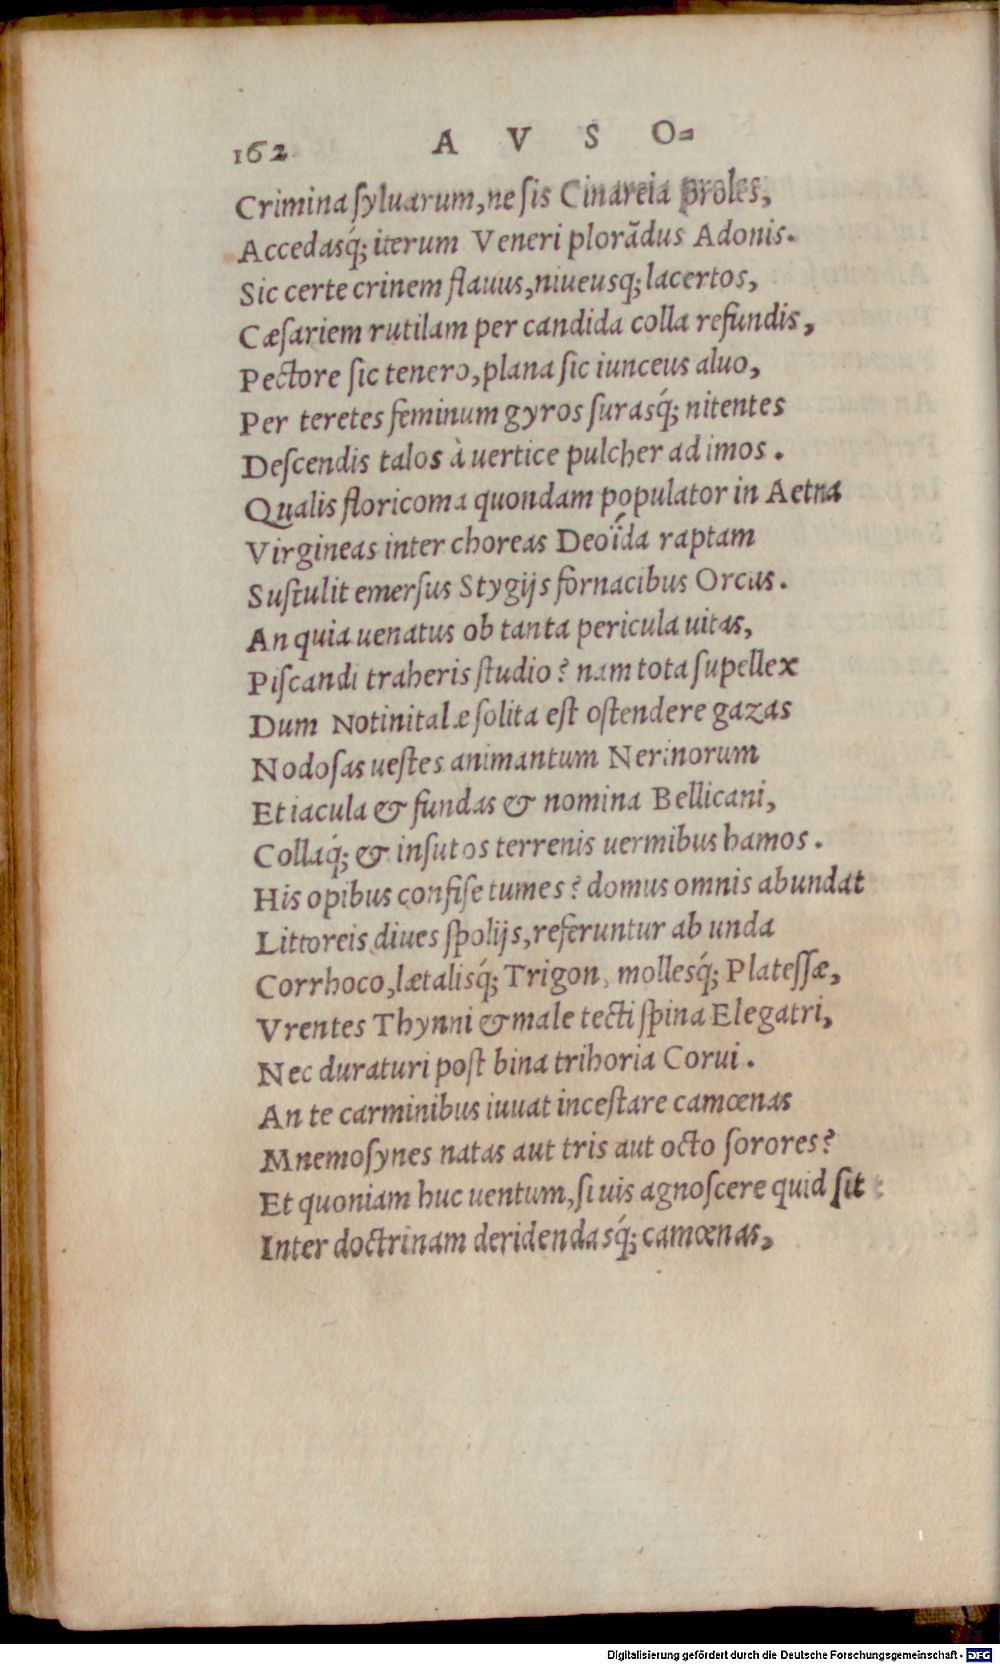 162 A V S O=
Crimina ſyluarum, ne ſis Cinareia proles,
Accedasq́; iterum Veneri plorãdus Adonis.
Sic certe crinem flauus, niueusq; lacertos,
Cæſariem rutilam per candida colla refundis,
Pectore ſic tenero, plana ſic iunceus aluo,
Per teretes feminum gyros ſurasq́; nitentes
Deſcendis talos à uertice pulcher ad imos.
Qualis floricoma quondam populator in Aetna
Virgineas inter choreas Deoḯda raptam
Suſtulit emerſus Stygijs fornacibus Orcus.
An quia uenatus ob tanta pericula uitas,
Piſcandi traheris ſtudio? nam tota ſupellex
Dum Notinitalæ ſolita eſt oſtendere gazas
Nodoſas ueſtes animantum Nerinorum
Et iacula & fundas & nomina Bellicani,
Collaq́; & inſutos terrenis uermibus hamos.
His opibus confiſe tumes? domus omnis abundat
Littoreis diues ſpolijs, referuntur ab unda
Corrhoco, lætalisq́; Trigon, mollesq́; Plateſſæ,
Vrentes Thynni & male tecti ſpina Elegatri,
Nec duraturi poſt bina trihoria Corui.
An te carminibus iuuat inceſtare camœnas
Mnemoſynes natas aut tris aut octo ſorores?
Et quoniam huc uentum, ſi uis agnoſcere quid ſit :
Inter doctrinam deridendasq́; camœnas,
Digitalisierung gefördert durch die Deutsche Forschungsgemeinschaft - DFG